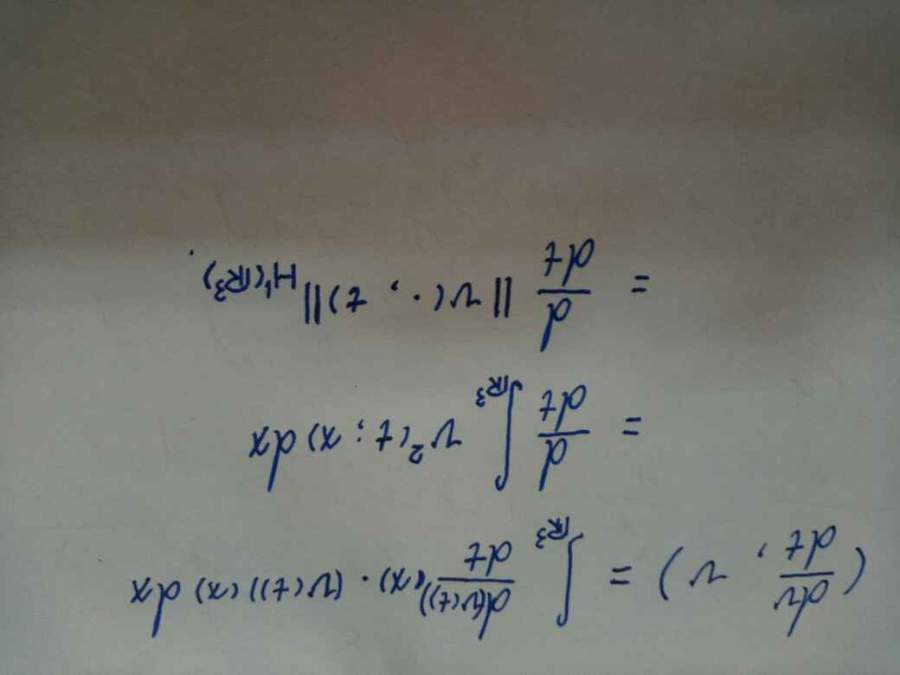 (dv/dt, v) = ∫_ℝ³ d(v(t))/dt (x) · (v(t))(x) dx
= d/dt ∫_ℝ³ v²(t; x) dx
= d/dt ||v(·, t)||_H¹(ℝ³).